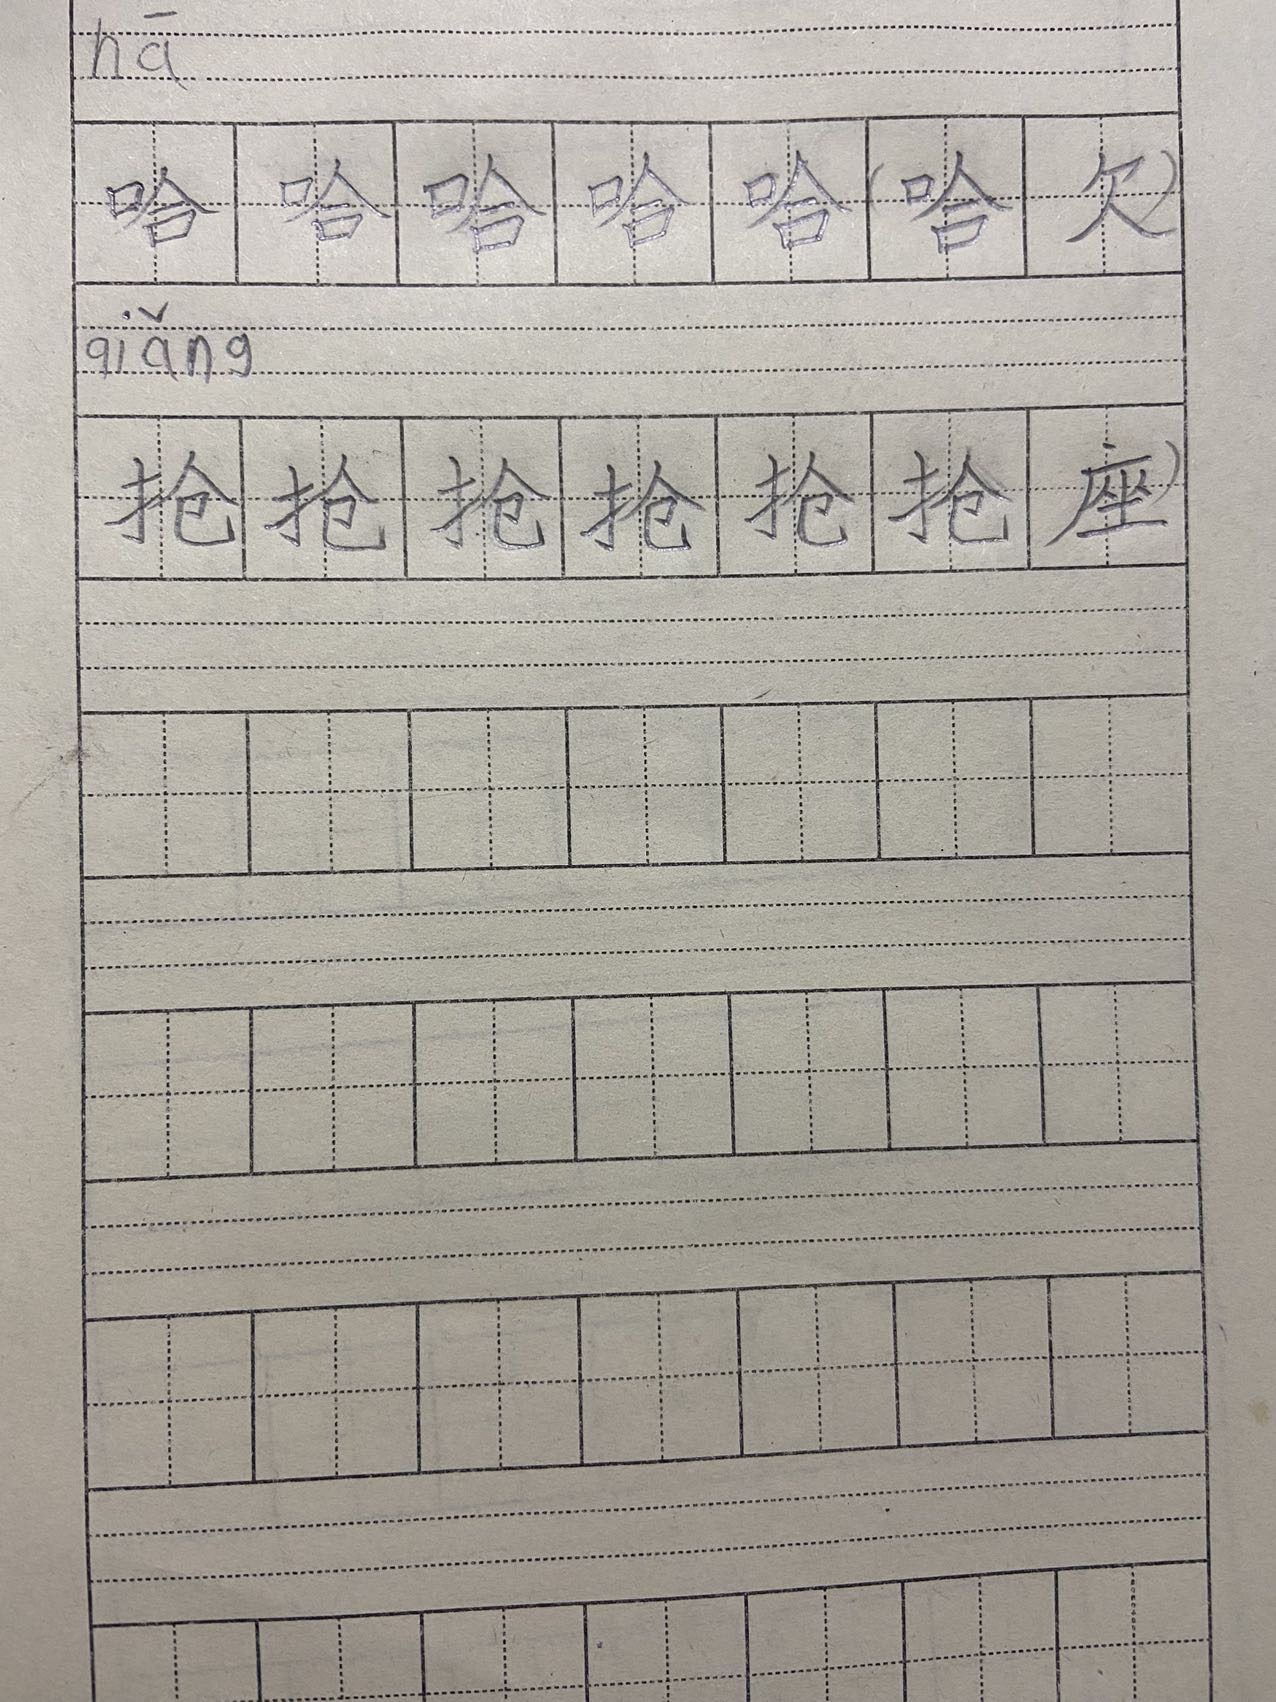 hā
哈哈哈哈哈(哈欠)
qiǎng
抢抢抢抢抢抢座)